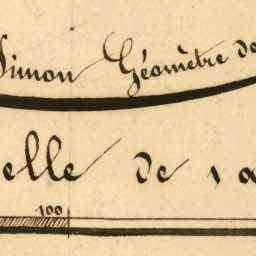 Simon Géomètre de
elle de 1 a
100